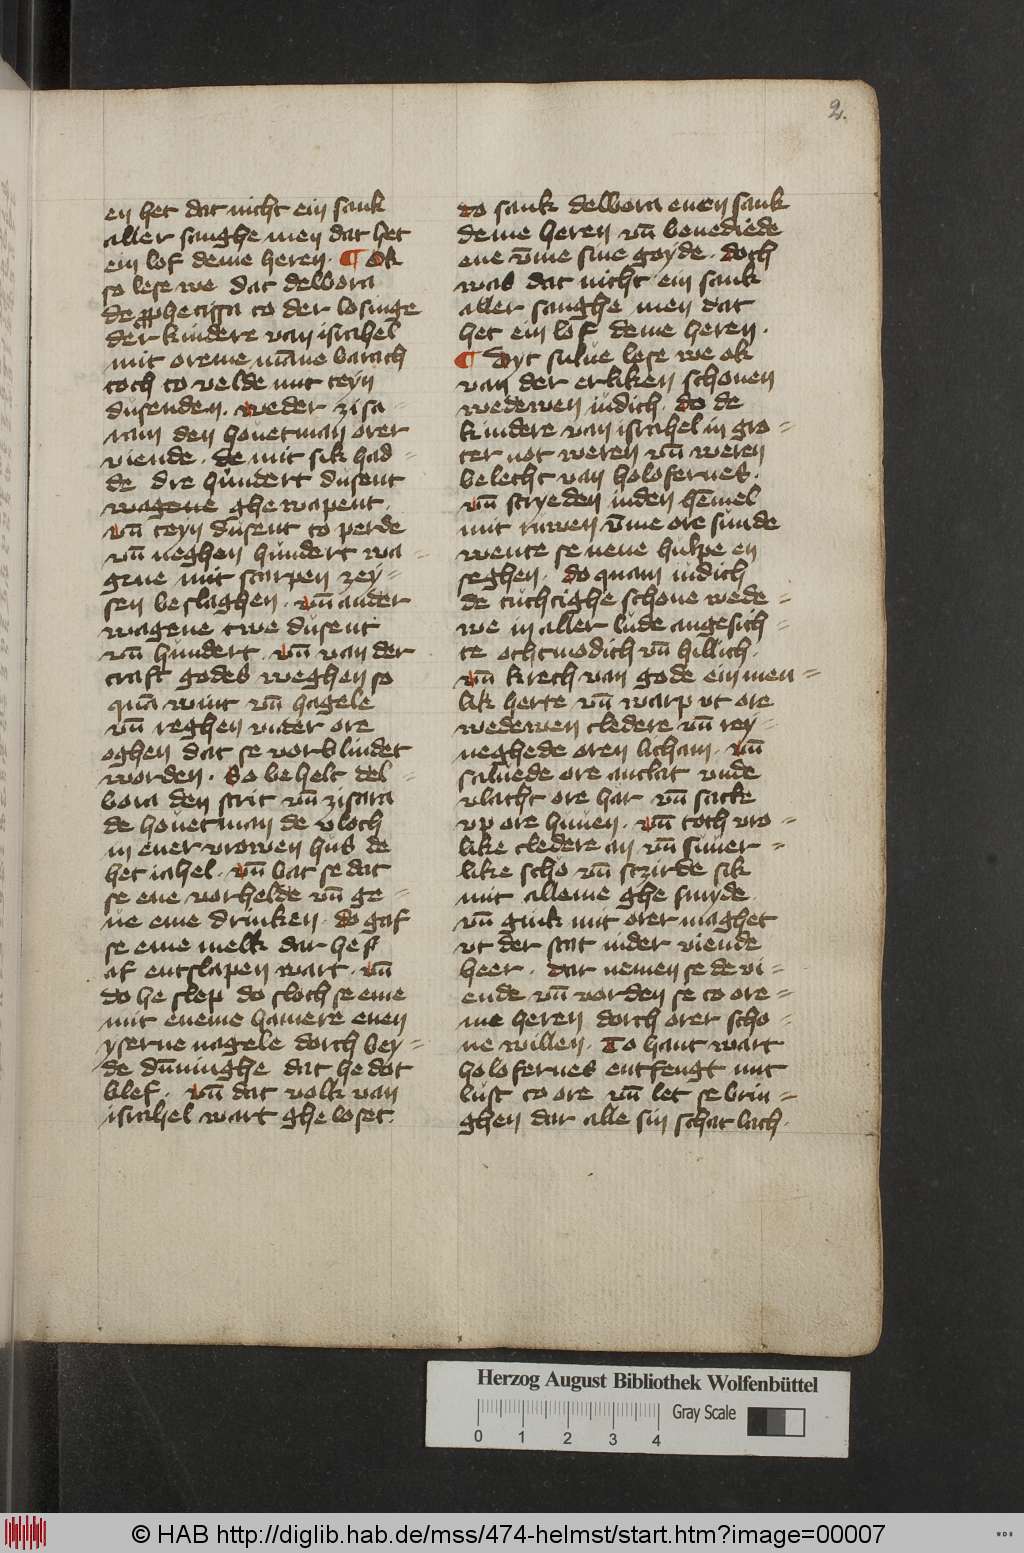 2.
en het dat nicht ein sank
aller sanghe men dat het
ein lof deme heren. ¶ Ok
so lese we dat delbora
de ꝓphetissa to der losinge
der kindere van israhel
mit oreme māne barach
toch to velde mit teyn
dusenden. weder zisa-
ram den houetman orer
viende. de mit sik had-
de dre hundert dusent
wagene ghe wapent.
vn̄ teyn dusent to perde
vn̄ neghen hundert wa-
gene mit scarpen zey-
sen beslaghen. vn̄ ander
wagene twe dusent
vn̄ hundert. vn̄ van der
craft godes weghen so
quā wint vn̄ hagele
vn̄ reghen vnder ore
oghen dat se vorblindet
worden. So behelt del-
bora den strit vn̄ zisara
de houetman de vloch
in ener vrowen hus de
het iahel. vn̄ bat se dat
se ene vorhelde vn̄ ge-
ue eme drinken. do gaf
se eme melk dar he
af entslapen wart. vn̄
do he slep do sloch se eme
mit eneme hamere enen
yserne nagele dorch bey-
de dūninghe dat he dot
blef. vn̄ dat volk van
israhel wart ghe loset.
to sank delbora enen sank
deme heren vn̄ benediede
ene v̄me sine goyde. doch
was dat nicht ein sank
aller sanghe men dat
het ein lof deme heren.
¶ Dyt sulue lese we ok
van der erliken schonen
wedewen iudich. do de
kindere van israhel in gro-
ter not weren vn̄ weren
belecht van holofernes.
vn̄ scryeden inden hēmel
mit ruwen v̄me ore sunde
wente se nene hulpe en
seghen. do quam iudich
de tuchtighe schone wede-
we in aller lude angesich-
te othmodich vn̄ hillich.
vn̄ krech van gode ein men-
lik herte vn̄ warp vt ore
wedewen cledere vn̄ rey-
neghede oren licham. vn̄
saluede ore antlat vnde
vlacht ore har vn̄ sacte
vp ore huuen. vn̄ toch vro-
like cledere an vn̄ suuer-
like scho vn̄ sczirde sik
mit alleme ghe smyde.
vn̄ gink mit orer maghet
vt der stat inder viende
heer. dar nemen se de vi-
ende vn̄ vorden se to ore-
me heren dorch orer scho-
ne willen. To hant wart
holofernes entfengt mit
lust to ore vn̄ let se brin-
ghen dar alle sin schat lach.
Herzog August Bibliothek Wolfenbüttel
Gray Scale
0 1 2 3 4
© HAB http://diglib.hab.de/mss/474-helmst/start.htm?image=00007